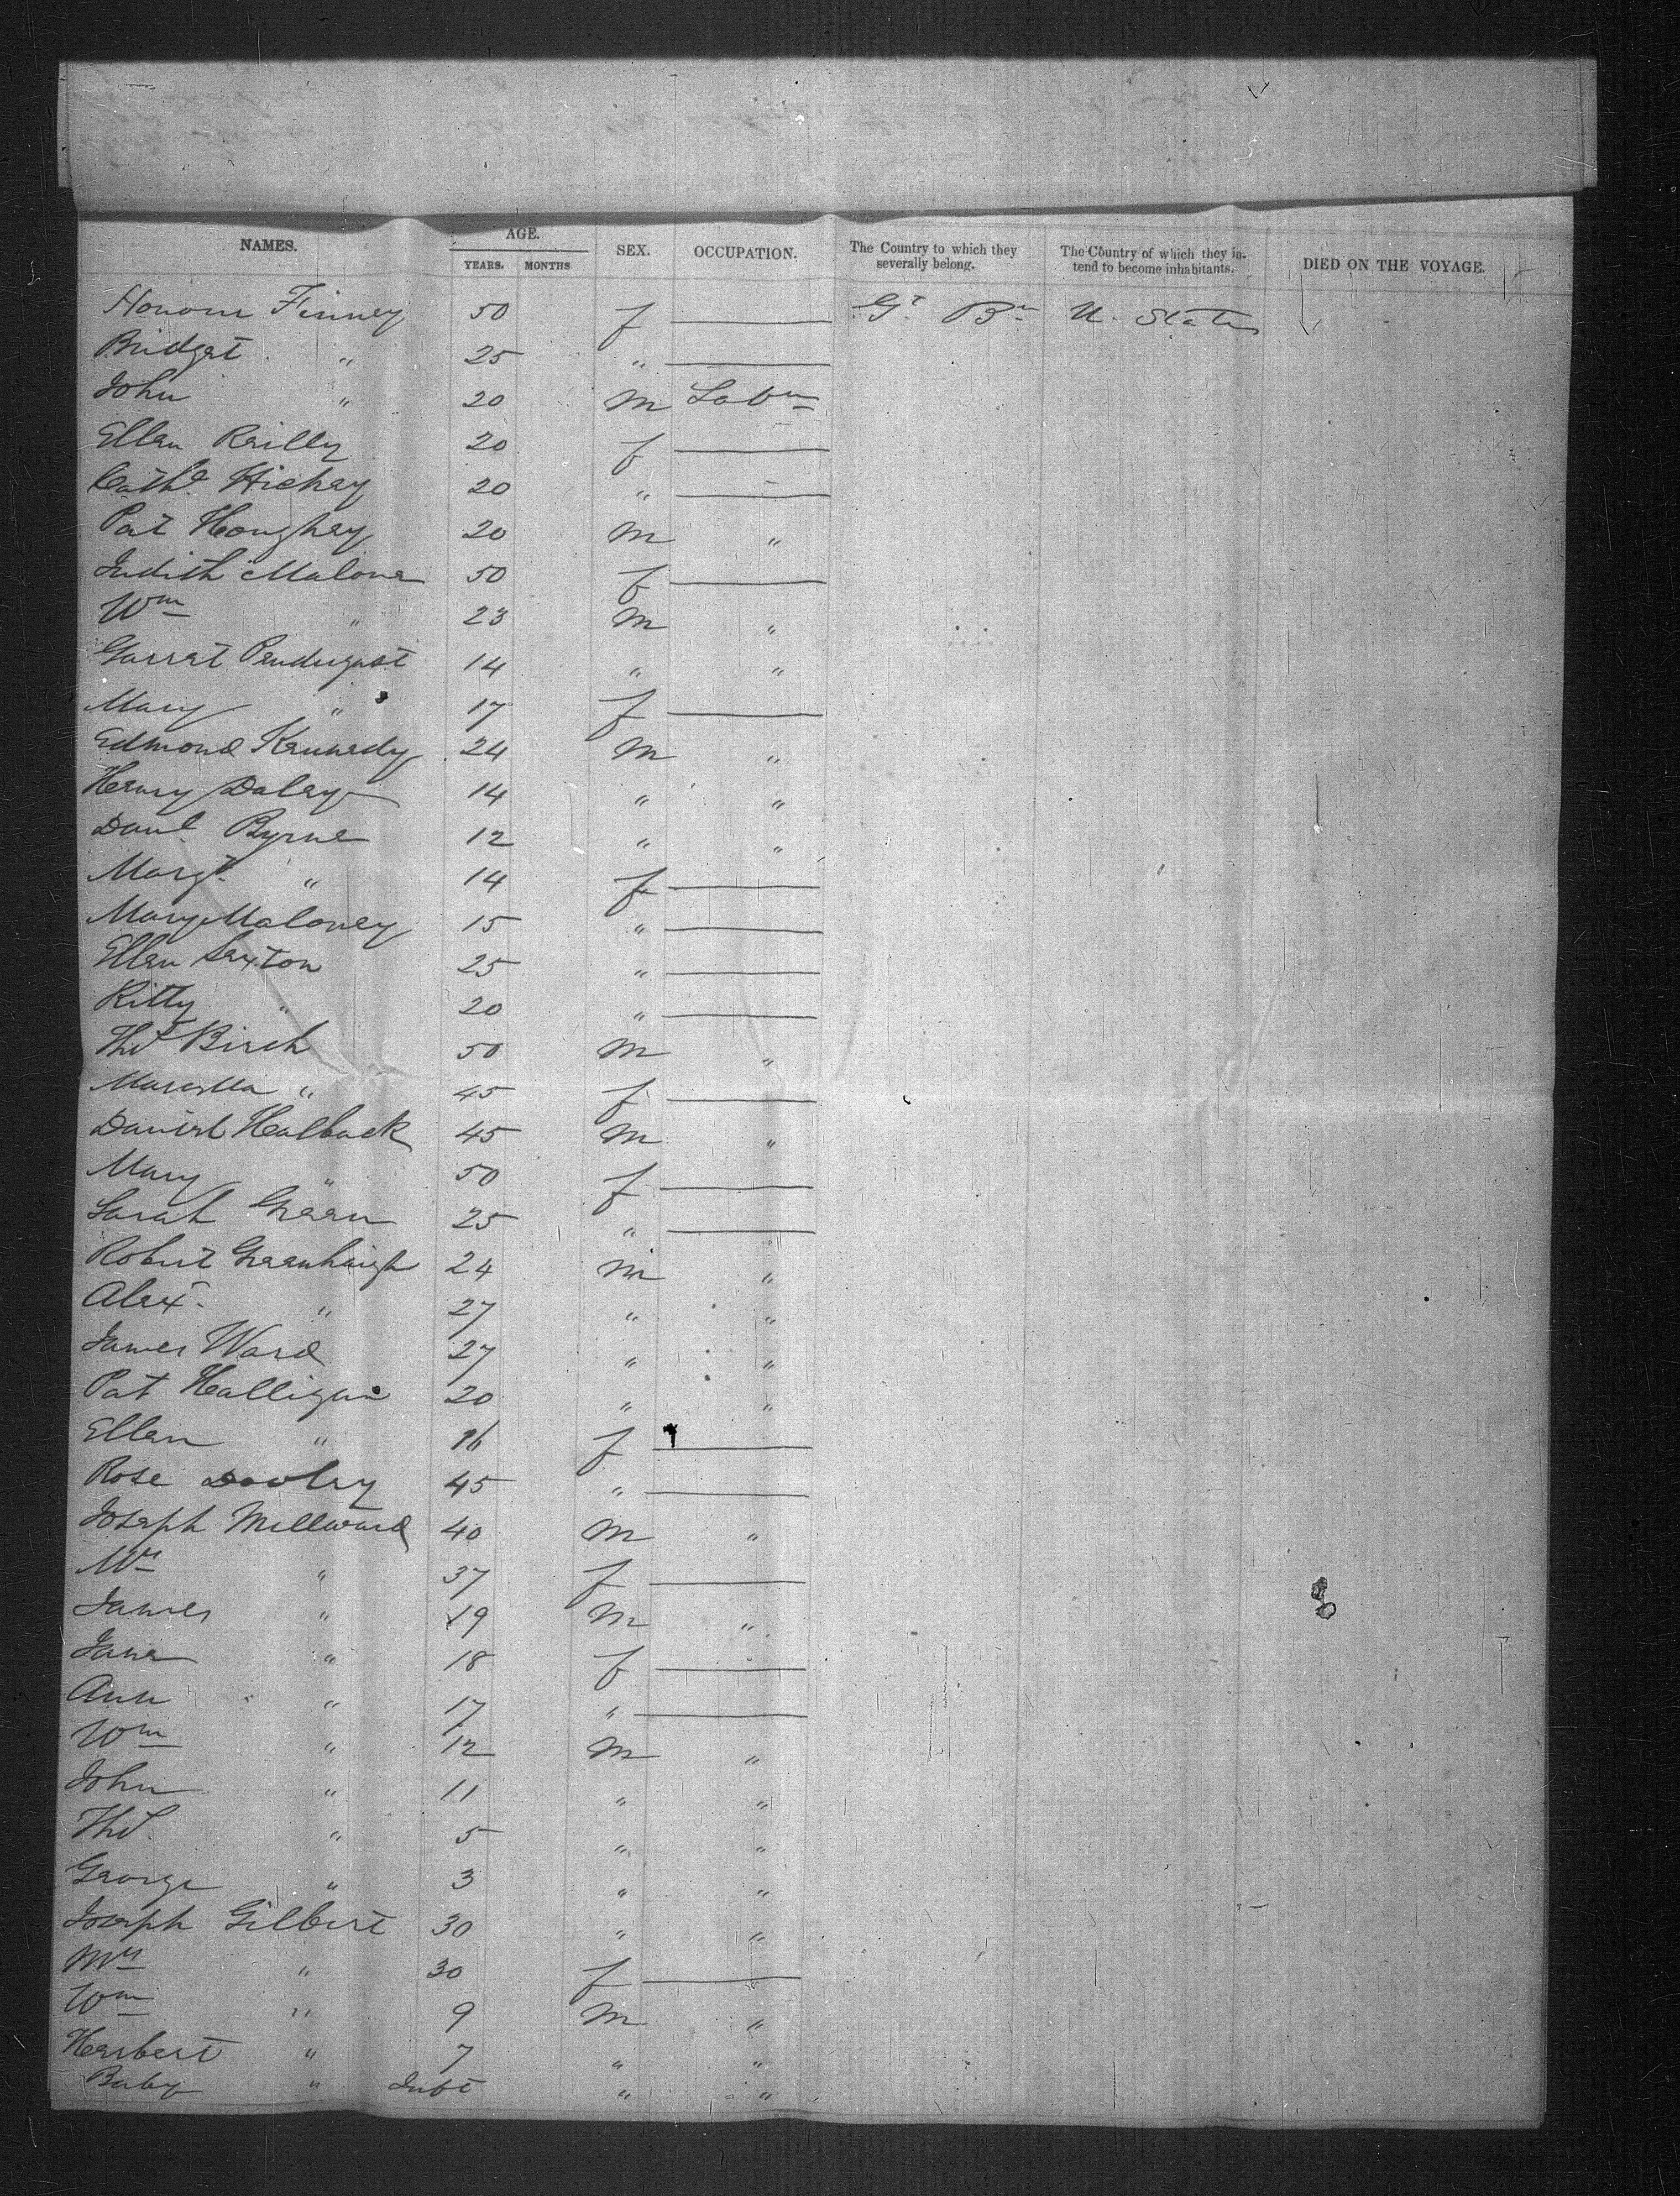 NAMES. AGE. SEX. OCCUPATION. The Country to which they severally belong. The Country of which they intend to become inhabitants. DIED ON THE VOYAGE.
YEARS. MONTHS
Honour Finney 50 f — Gt. Bn U. States
Bridget " 25 " —
John " 20 M Labr
Ellen Reilly 20 f —
Cathe Hickey 20 " —
Pat Houghey 20 M "
Judith Malone 50 f —
Wm " 23 M "
Garrat Pendergast 14 " "
Mary " 17 f —
Edmond Kennedy 24 M "
Henry Daley 14 " "
Danl Byrne 12 " "
Margt. " 14 f —
Mary Maloney 15 " —
Ellen Sexton 25 " —
Kitty " 20 " —
Thos Birch 50 M "
Marcella " 45 f —
Daniel Halback 45 M "
Mary " 50 f —
Sarah Green 25 " —
Robert Greenhaigh 24 M "
Alex. " 27 " "
James Ward 27 " "
Pat Halligan 20 " "
Ellen " 16 f —
Rose Dooley 45 " —
Joseph Millward 40 M "
Mrs " 37 f —
James " 19 M "
Jane " 18 f —
Ann " 17 " —
Wm " 12 M "
John " 11 " "
Thos. " 5 " "
George " 3 " "
Joseph Gilbert 30 " "
Mrs " 30 f —
Wm " 9 M "
Herbert " 7 " "
Baby " Inft " "